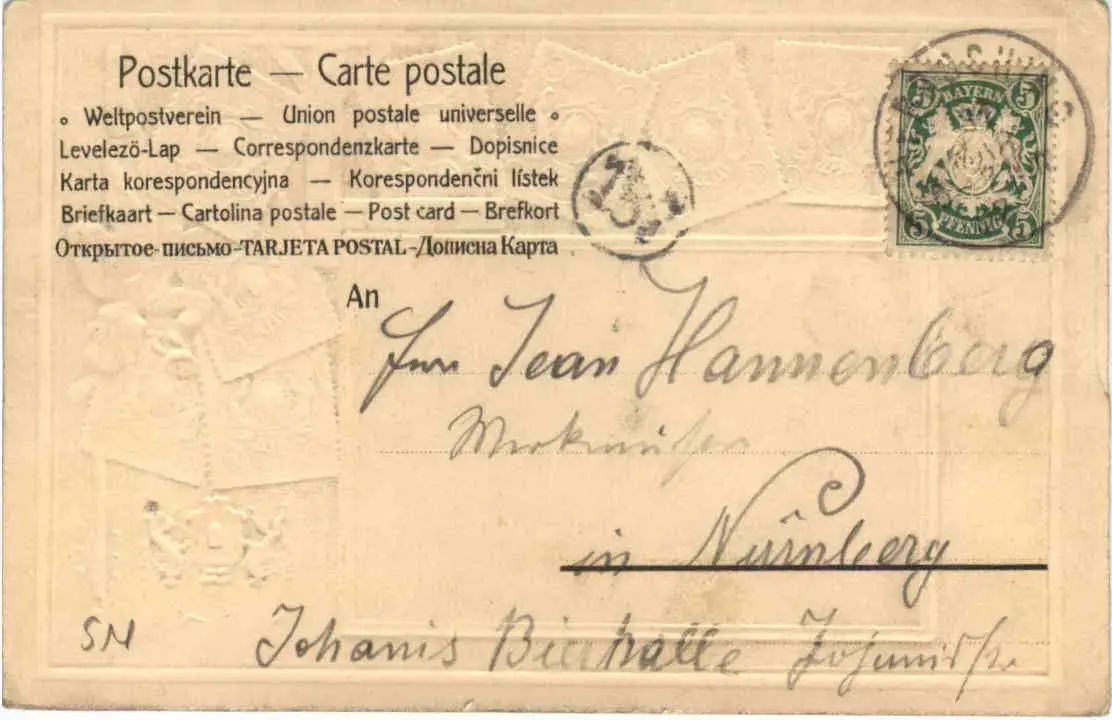 Postkarte — Carte postale
Weltpostverein — Union postale universelle
Levelező-Lap — Correspondenzkarte — Dopisnice
Karta korespondencyjna — Korespondenčni lístek
Briefkaart — Cartolina postale — Post card — Brefkort
Открытое-письмо-TARJETA POSTAL-Дописна Карта
5 BAYERN 5
5 PFENNIG 5
An
Jean Hannenberg
in Nürnberg
SN Johanis Bierhalle